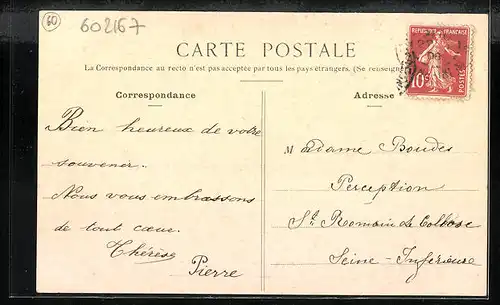 60
602167
CARTE POSTALE
La Correspondance au recto n'est pas acceptée par tous les pays étrangers. (Se renseigne
Correspondance
Adresse
REPUBLIQUE FRANÇAISE
10c
POSTES
Bien heureux de votre
souvenir.
Nous vous embrassons
de tout cœur.
Thérèse
Pierre
Madame Boudes
Perception
St Romain de Colbosc
Seine-Inférieure